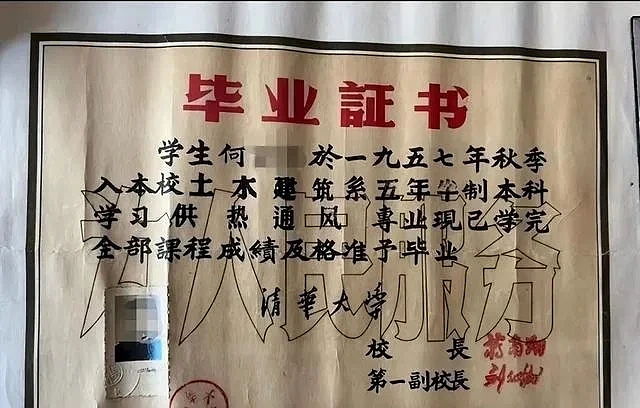 毕业証书
学生何 於一九五七年秋季
入本校土木建筑系五年半制本科
学习供热通风專业現已学完
全部課程成績及格准予毕业
为人民服务
清華大学
校長 蒋南翔
第一副校長